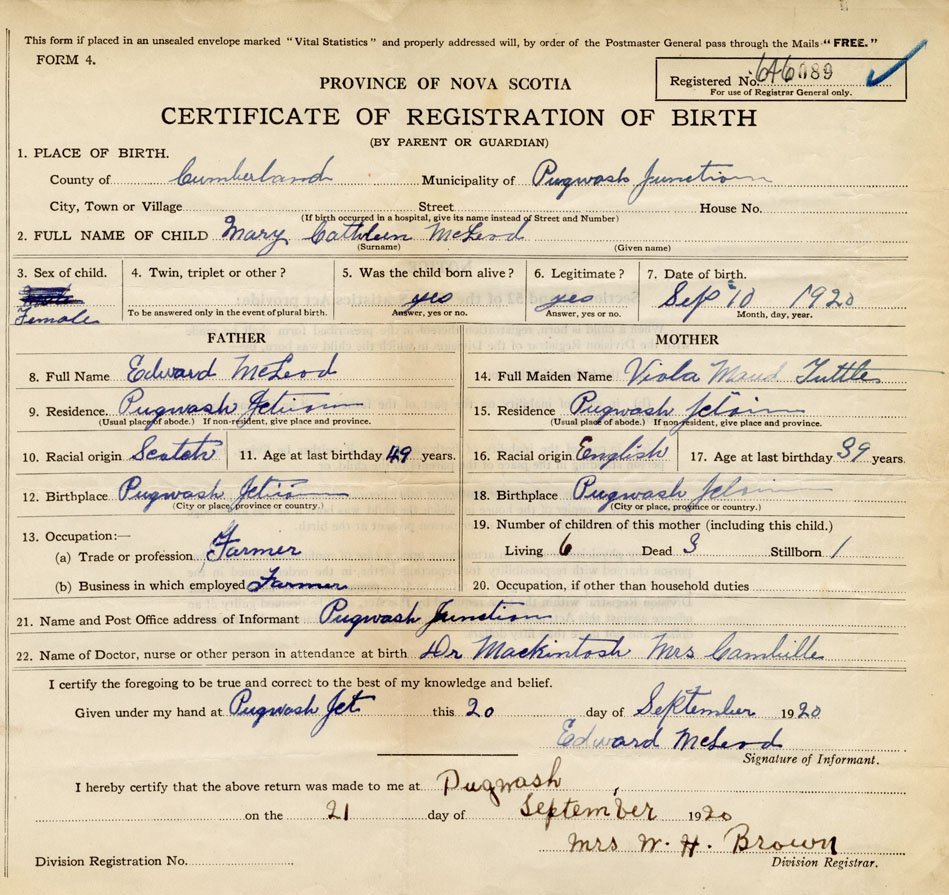 This form if placed in an unsealed envelope marked "Vital Statistics" and properly addressed will, by order of the Postmaster General pass through the Mails "FREE."
FORM 4.
Registered No.
For use of Registrar General only.
PROVINCE OF NOVA SCOTIA
CERTIFICATE OF REGISTRATION OF BIRTH
(BY PARENT OR GUARDIAN)
1. PLACE OF BIRTH.
County of Cumberland Municipality of Pugwash Junction
City, Town or Village Street House No.
(If birth occurred in a hospital, give its name instead of Street and Number)
2. FULL NAME OF CHILD Mary Cathleen McLeod
(Surname) (Given name)
3. Sex of child. 4. Twin, triplet or other? 5. Was the child born alive? 6. Legitimate? 7. Date of birth.
yes yes Sep 10 1920
Female To be answered only in the event of plural birth. Answer, yes or no. Answer, yes or no. Month, day, year.
FATHER MOTHER
8. Full Name Edward McLeod 14. Full Maiden Name Viola Maud Tuttle
9. Residence. Pugwash 15. Residence Pugwash
(Usual place of abode.) If non-resident, give place and province. (Usual place of abode.) If non-resident, give place and province.
10. Racial origin Scotch 11. Age at last birthday 49 years. 16. Racial origin English 17. Age at last birthday 39 years.
12. Birthplace Pugwash 18. Birthplace Pugwash
(City or place, province or country.) (City or place, province or country.)
13. Occupation:— 19. Number of children of this mother (including this child.)
(a) Trade or profession Farmer Living 6 Dead 3 Stillborn 1
(b) Business in which employed Farmer 20. Occupation, if other than household duties
21. Name and Post Office address of Informant Pugwash Junction
22. Name of Doctor, nurse or other person in attendance at birth Dr Mackintosh Mrs
I certify the foregoing to be true and correct to the best of my knowledge and belief.
Given under my hand at Pugwash Jct this 20 day of September 1920
Edward McLeod
Signature of Informant.
I hereby certify that the above return was made to me at Pugwash
on the 21 day of September 1920
Mrs W. H. Brown
Division Registration No. Division Registrar.